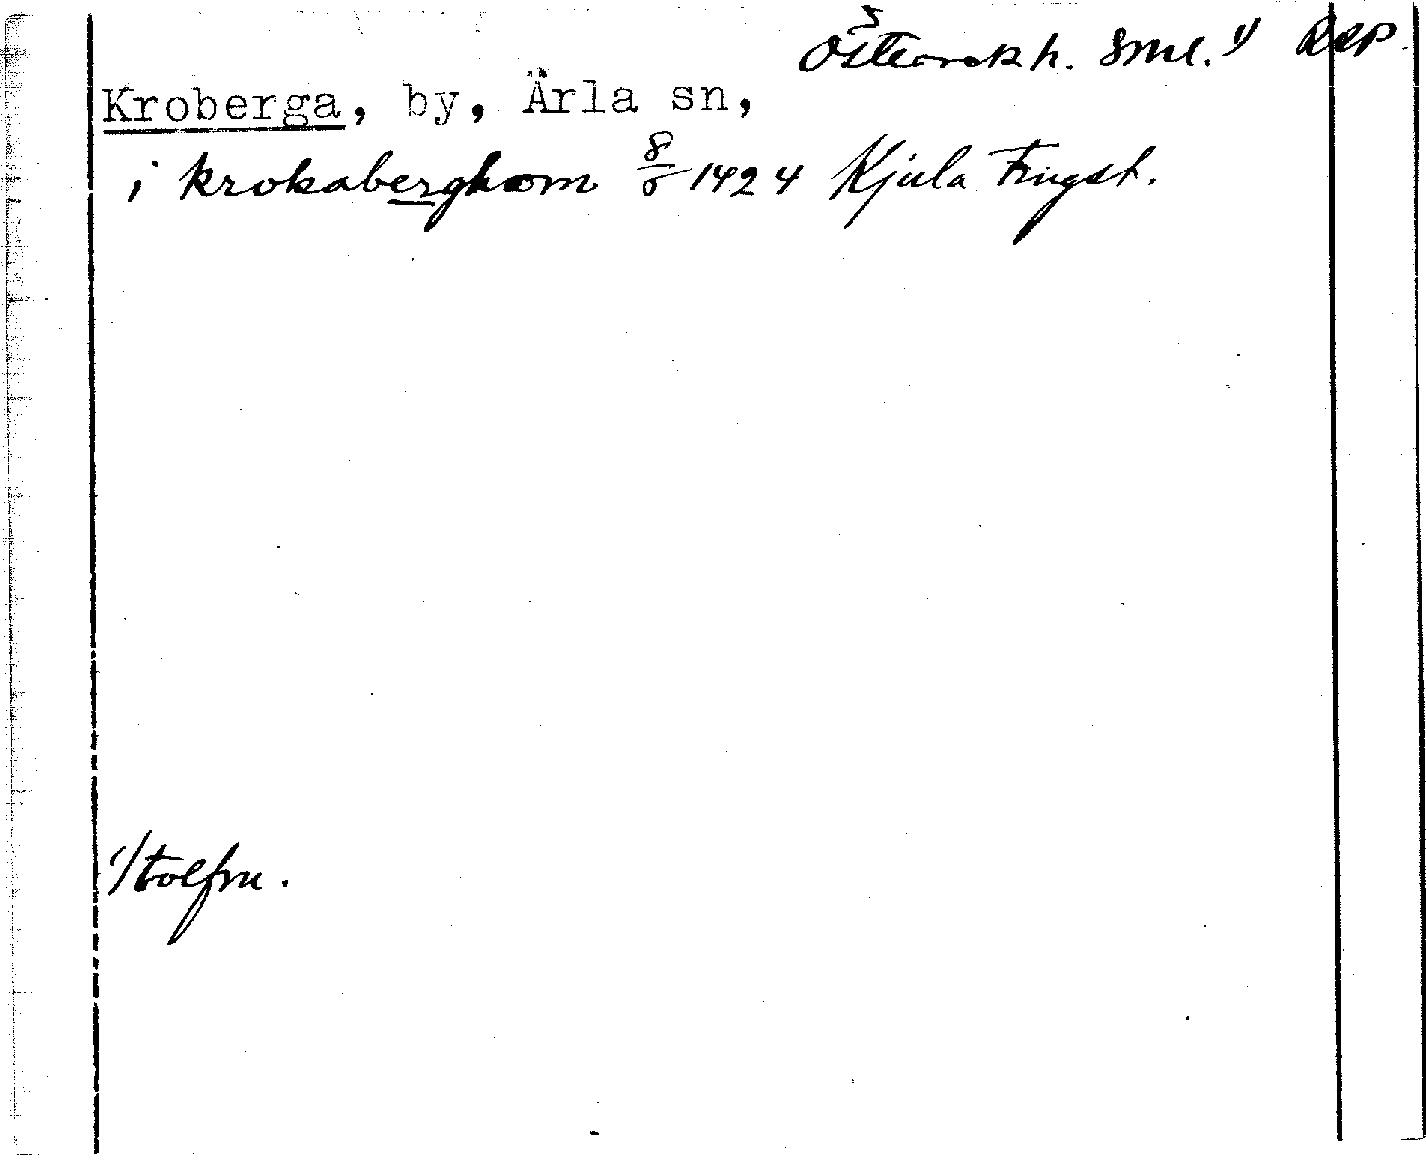 Österrekh. Sml. 1) RAP
Kroberga, by, Ärla sn,
i krokaberghom 8/6 1424 Kjula Tingst.
1/ tolfm.